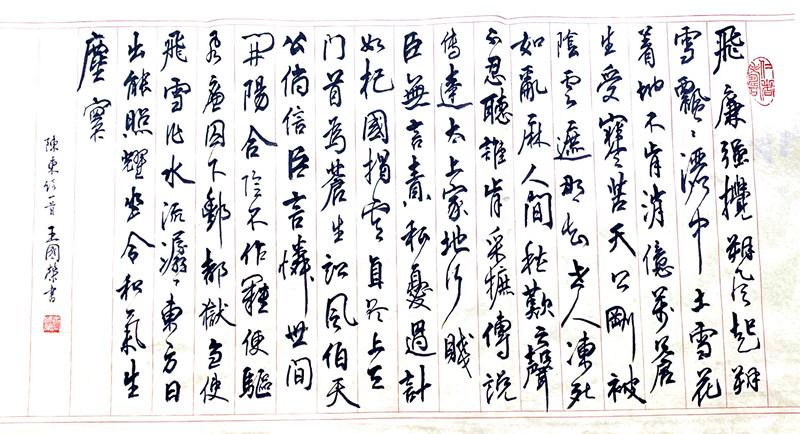 仁者壽
飛廉強攪朔風起朔
雪飄〻灑中土雪花
着地不肯消億萬蒼
生受寒苦天公剛被
陰雲遮那知世人凍死
如亂麻人間愁歎之聲
不忍聽誰肯采摭傳說
傳達太上家地行賤
臣無言責私憂過計
如杞國揭雲直欲上天
門首為蒼生訟風伯天
公倘信臣言憐世間
開陽合陰不作難便驅
飛廉囚下酆都獄急使
飛雪作水流潺〻東方日
出能照耀坐令和氣生
塵寰
陳東詩一首 王國榮書